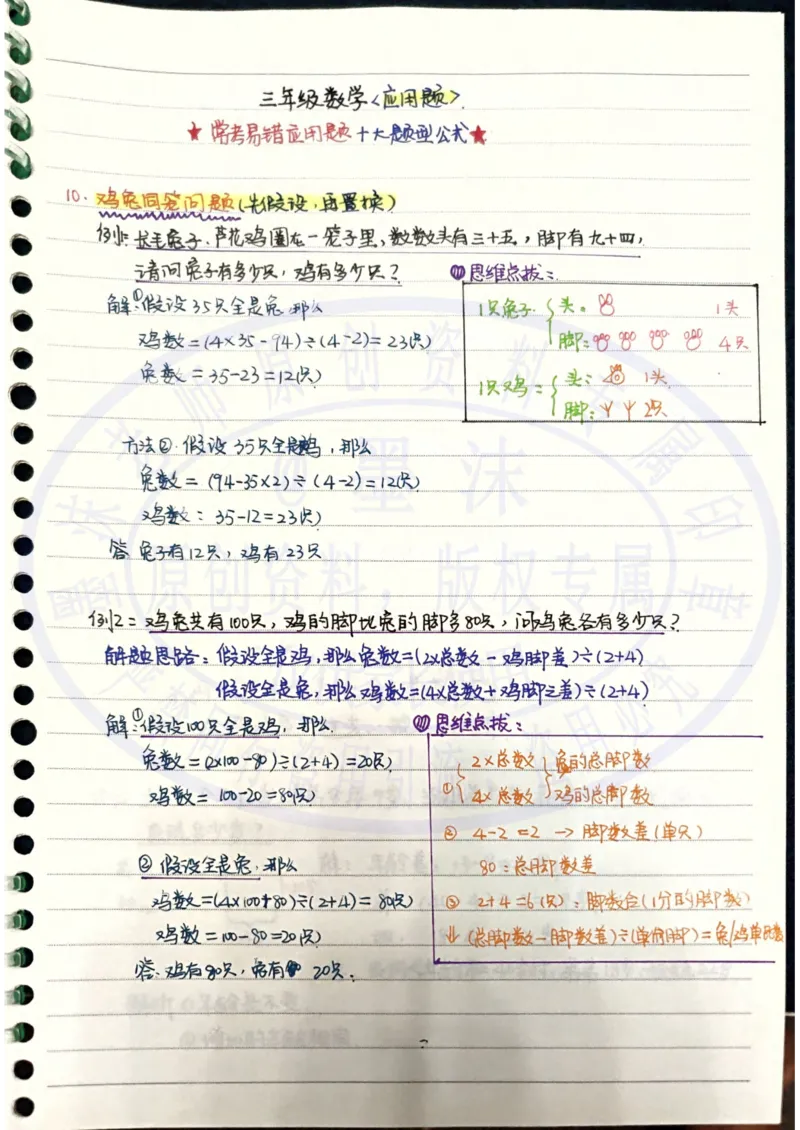 三年级数学<应用题>
★常考易错应用题十大题型公式★
10. 鸡兔同笼问题(先假设,再置换)
例1: 长毛兔子,芦花鸡圈在一笼子里,数数头有三十五,脚有九十四,
请问兔子有多少只,鸡有多少只?
思维点拨:
1只兔子 头: 1头
脚: 4只
1只鸡: 头: 1头
脚: 2只
解:①假设35只全是兔,那么
鸡数=(4×35-94)÷(4-2)=23(只)
兔数=35-23=12(只)
方法②.假设35只全是鸡,那么
兔数=(94-35×2)÷(4-2)=12(只)
鸡数: 35-12=23(只)
答:兔子有12只,鸡有23只
例2:鸡兔共有100只,鸡的脚比兔的脚多80只,问鸡兔各有多少只?
解题思路:假设全是鸡,那么兔数=(2×总数-鸡脚差)÷(2+4)
假设全是兔,那么鸡数=(4×总数+鸡脚之差)÷(2+4)
解:①假设100只全是鸡,那么
兔数=(2×100-80)÷(2+4)=20(只)
鸡数=100-20=80(只)
②假设全是兔,那么
鸡数=(4×100+80)÷(2+4)=80(只)
鸡数=100-80=20(只)
答:鸡有80只,兔有20只.
思维点拨:
① 2×总数 兔的总脚数
4×总数 鸡的总脚数
② 4-2=2→脚数差(单只)
80:总脚数差
③ 2+4=6(只):脚数合(1分的脚数)
↓(总脚数-脚数差)÷(单份脚)=兔/鸡单只数
@墨沫
原创资料,版权专属